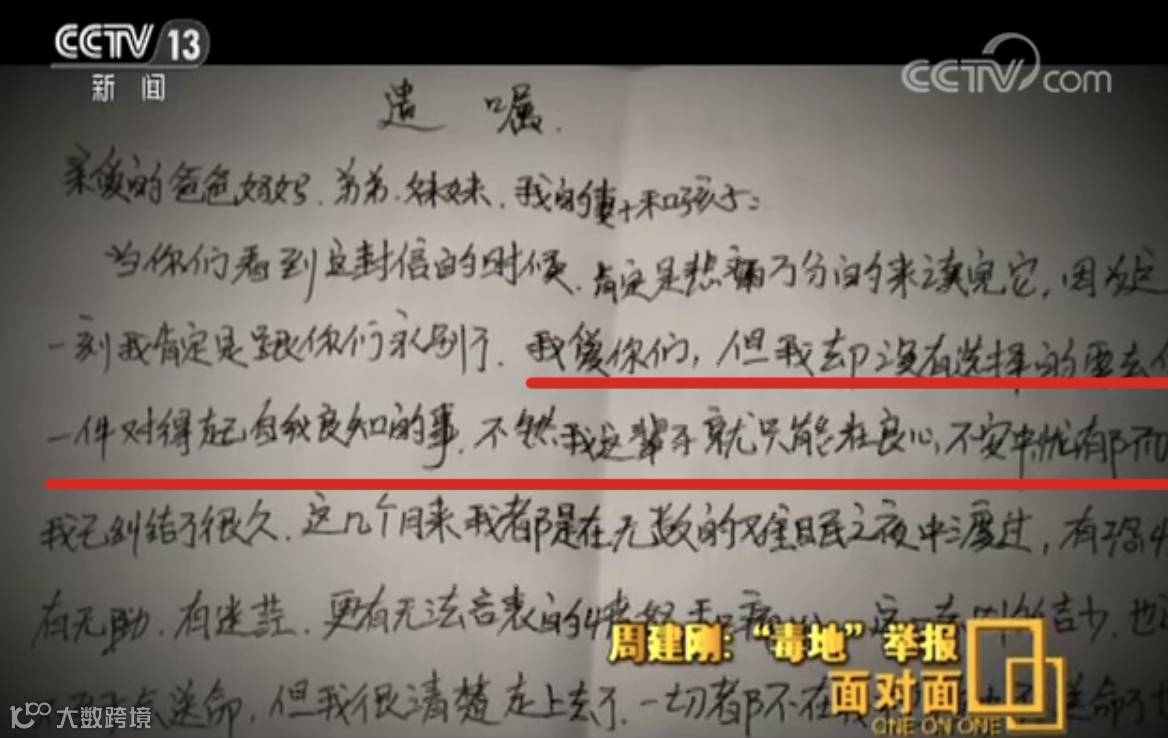 CCTV 13
新闻
CCTV.com
遗嘱.
亲爱的爸爸妈妈、弟弟、妹妹、我的妻子和孩子:
当你们看到这封信的时候、肯定是悲痛万分的来读完它,因为这
一刻我肯定是跟你们永别了.我爱你们,但我却没有选择的要去
一件对得起自我良知的事.不然我这辈子就只能在良心不安中忧郁而
我已纠结了很久.这几个月来我都是在无数的难眠之夜中渡过,有
有无助、有迷茫、更有无法言表的
送命,但我很清楚走上去了.一切都不在
周建刚:“毒地”举报
面对面
ONE ON ONE
大数跨境